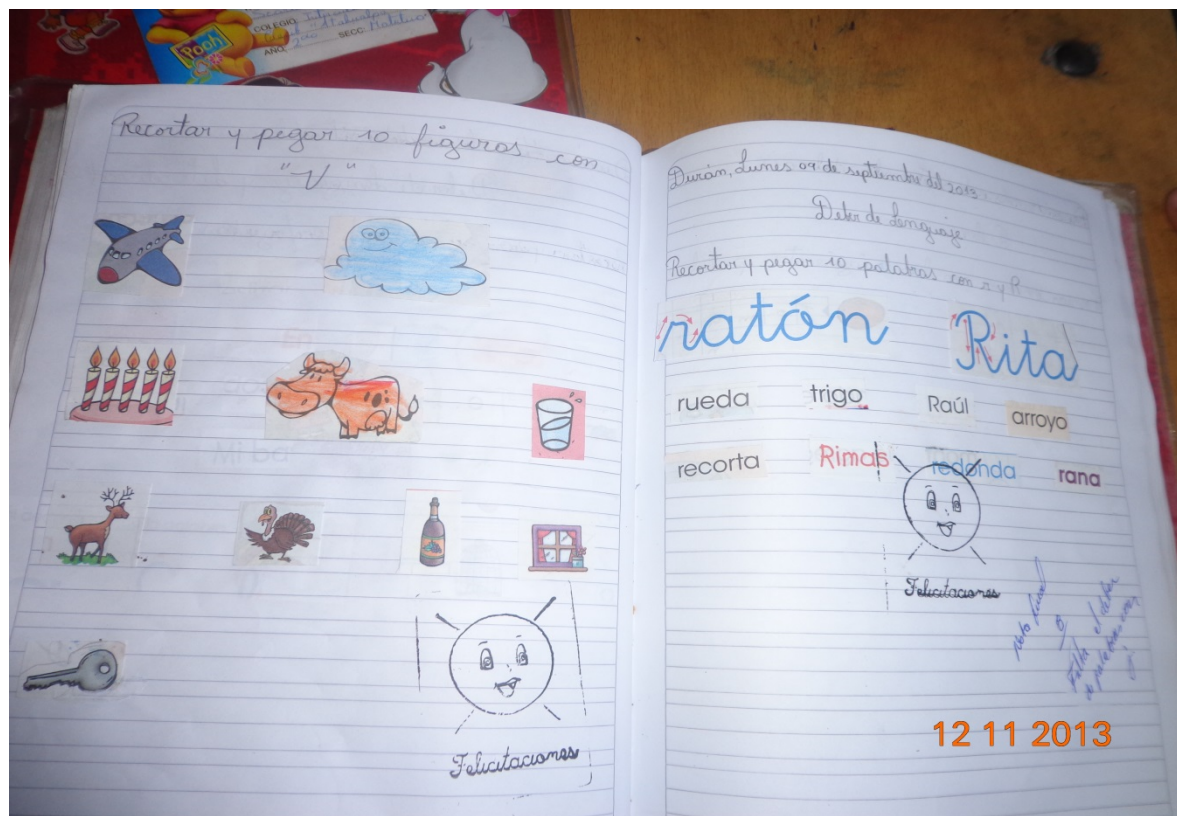 Pooh
COLEGIO:
AÑO: 2do SECC: Matutina
Recortar y pegar 10 figuras con
"V"
Felicitaciones
Durán, Lunes 09 de septiembre del 2013.
Deber de Lenguaje
Recortar y pegar 10 palabras con r y R
ratón Rita
rueda trigo Raúl arroyo
recorta Rimas redonda rana
Felicitaciones
Falta el deber
de palabras con
12 11 2013